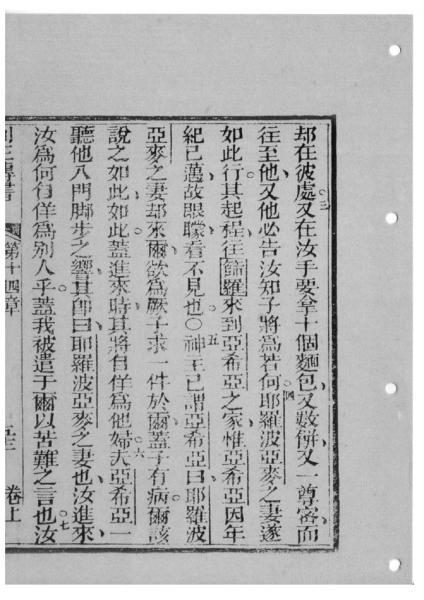 却在彼處又在汝手要拿十個麵包又數餅又一尊蜜而
往至他又他必告汝知子將為若何耶羅波亞麥之妻遂
如此行其起程往篩羅來到亞希亞之家惟亞希亞因年
紀已邁故眼矇看不見也○神主已謂亞希亞曰耶羅波
亞麥之妻却來爾欲為厥子求一件於爾蓋子有病爾該
說之如此如此蓋進來時其將自佯為他婦夫亞希亞一
聽他入門脚步之響其即曰耶羅波亞麥之妻也汝進來
汝為何自佯為別人乎蓋我被遣于爾以苦難之言也汝
列王傳書 第十四章 卷上